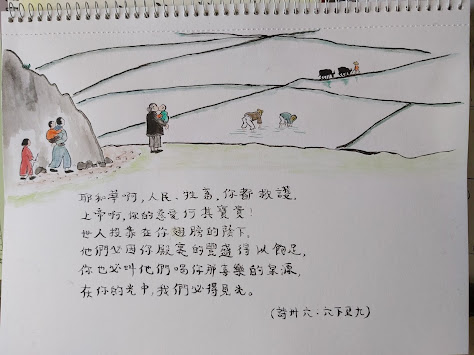 耶和華啊,人民、牲畜,你都救護。
上帝啊,你的慈愛何其寶貴!
世人投靠在你翅膀的蔭下。
他們必因你殿裏的豐盛得以飽足,
你也必叫他們喝你那喜樂的泉源,
在你的光中,我們必得見光。
(詩卅六.六下至九)